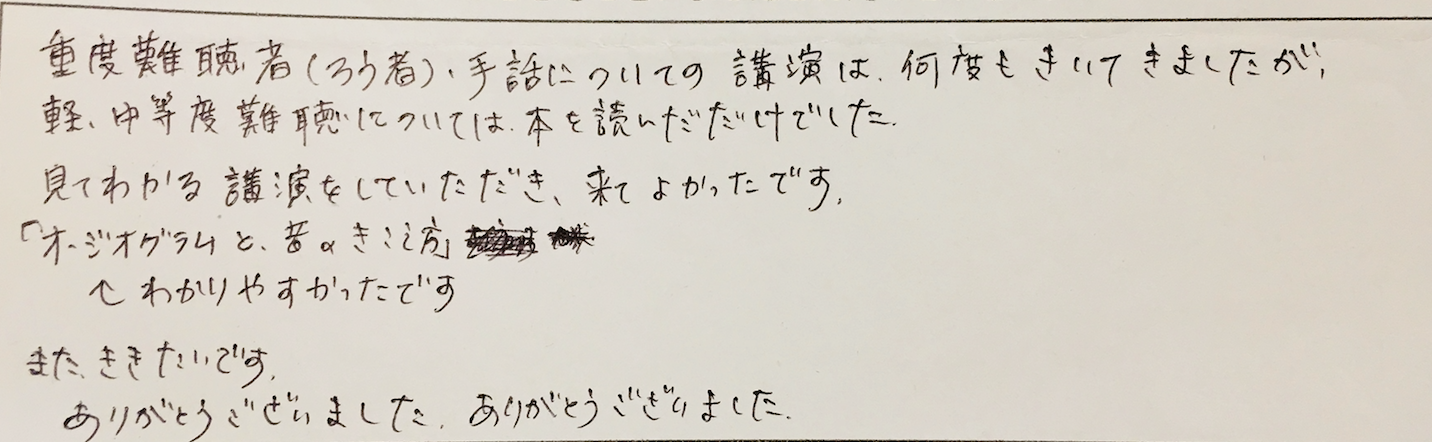 重度難聴者(ろう者)、手話についての講演は、何度もきいてきましたが、
軽、中等度難聴については、本を読んだだけでした。
見てわかる講演をしていただき、来てよかったです。
「オージオグラムと、音のきこえ方」
↑わかりやすかったです
また、ききたいです。
ありがとうございました。ありがとうございました。